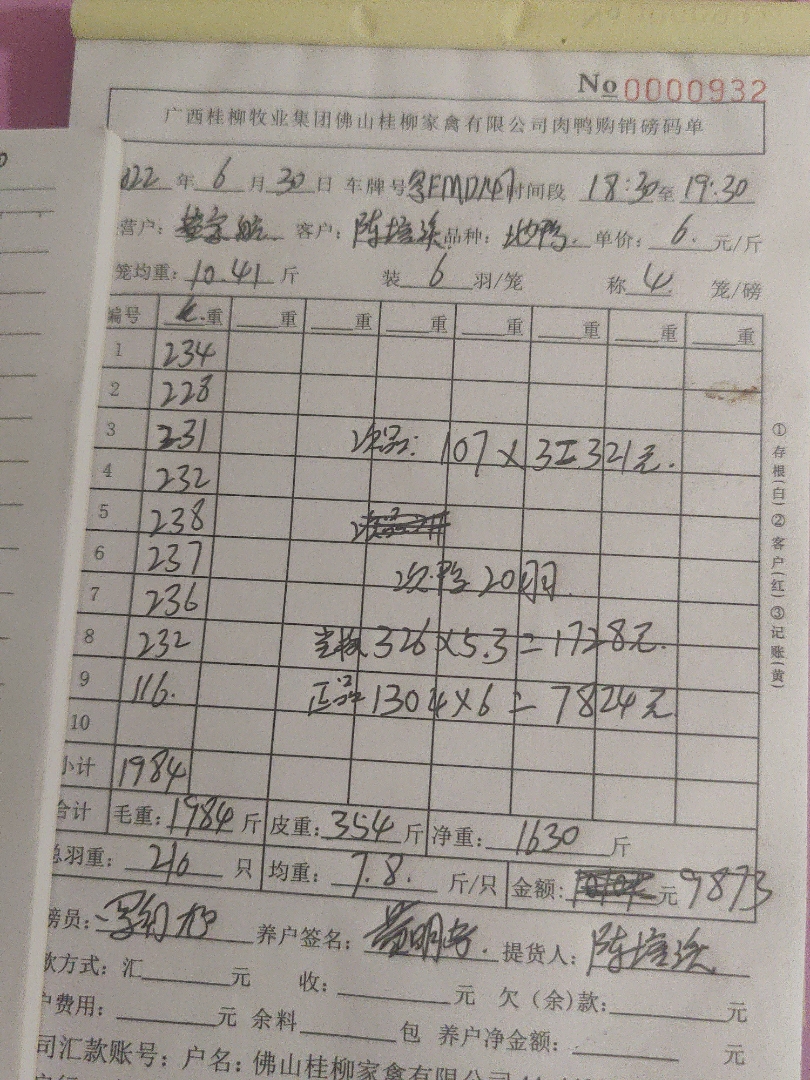 No 0000932
广西桂柳牧业集团佛山桂柳家禽有限公司肉鸭购销磅码单
022 年 6 月 30 日 车牌号 FMD147 时间段 18:30 至 19:30
营户: 客户: 陈 品种: 单价: 6. 元/斤
笼均重: 10.41 斤 装 6 羽/笼 称 4 笼/磅
编号 毛重 重 重 重 重 重 重 重
1 234
2 228
3 231 次品: 107×3=321元.
4 232
5 238
6 237 次鸭 20羽
7 236
8 232 326×5.3=1728元.
9 116. 正品 1304×6=7824元
10
小计 1984
合计 毛重: 1984 斤 皮重: 354 斤 净重: 1630 斤
总羽重: 210 只 均重: 7.8. 斤/只 金额: 元 9873
磅员: 养户签名: 黄明 提货人: 陈
款方式: 汇 元 收: 元 欠(余)款: 元
户费用: 元 余料 包 养户净金额: 元
司汇款账号: 户名: 佛山桂柳家禽有限公司
①存根(白)②客户(红)③记账(黄)